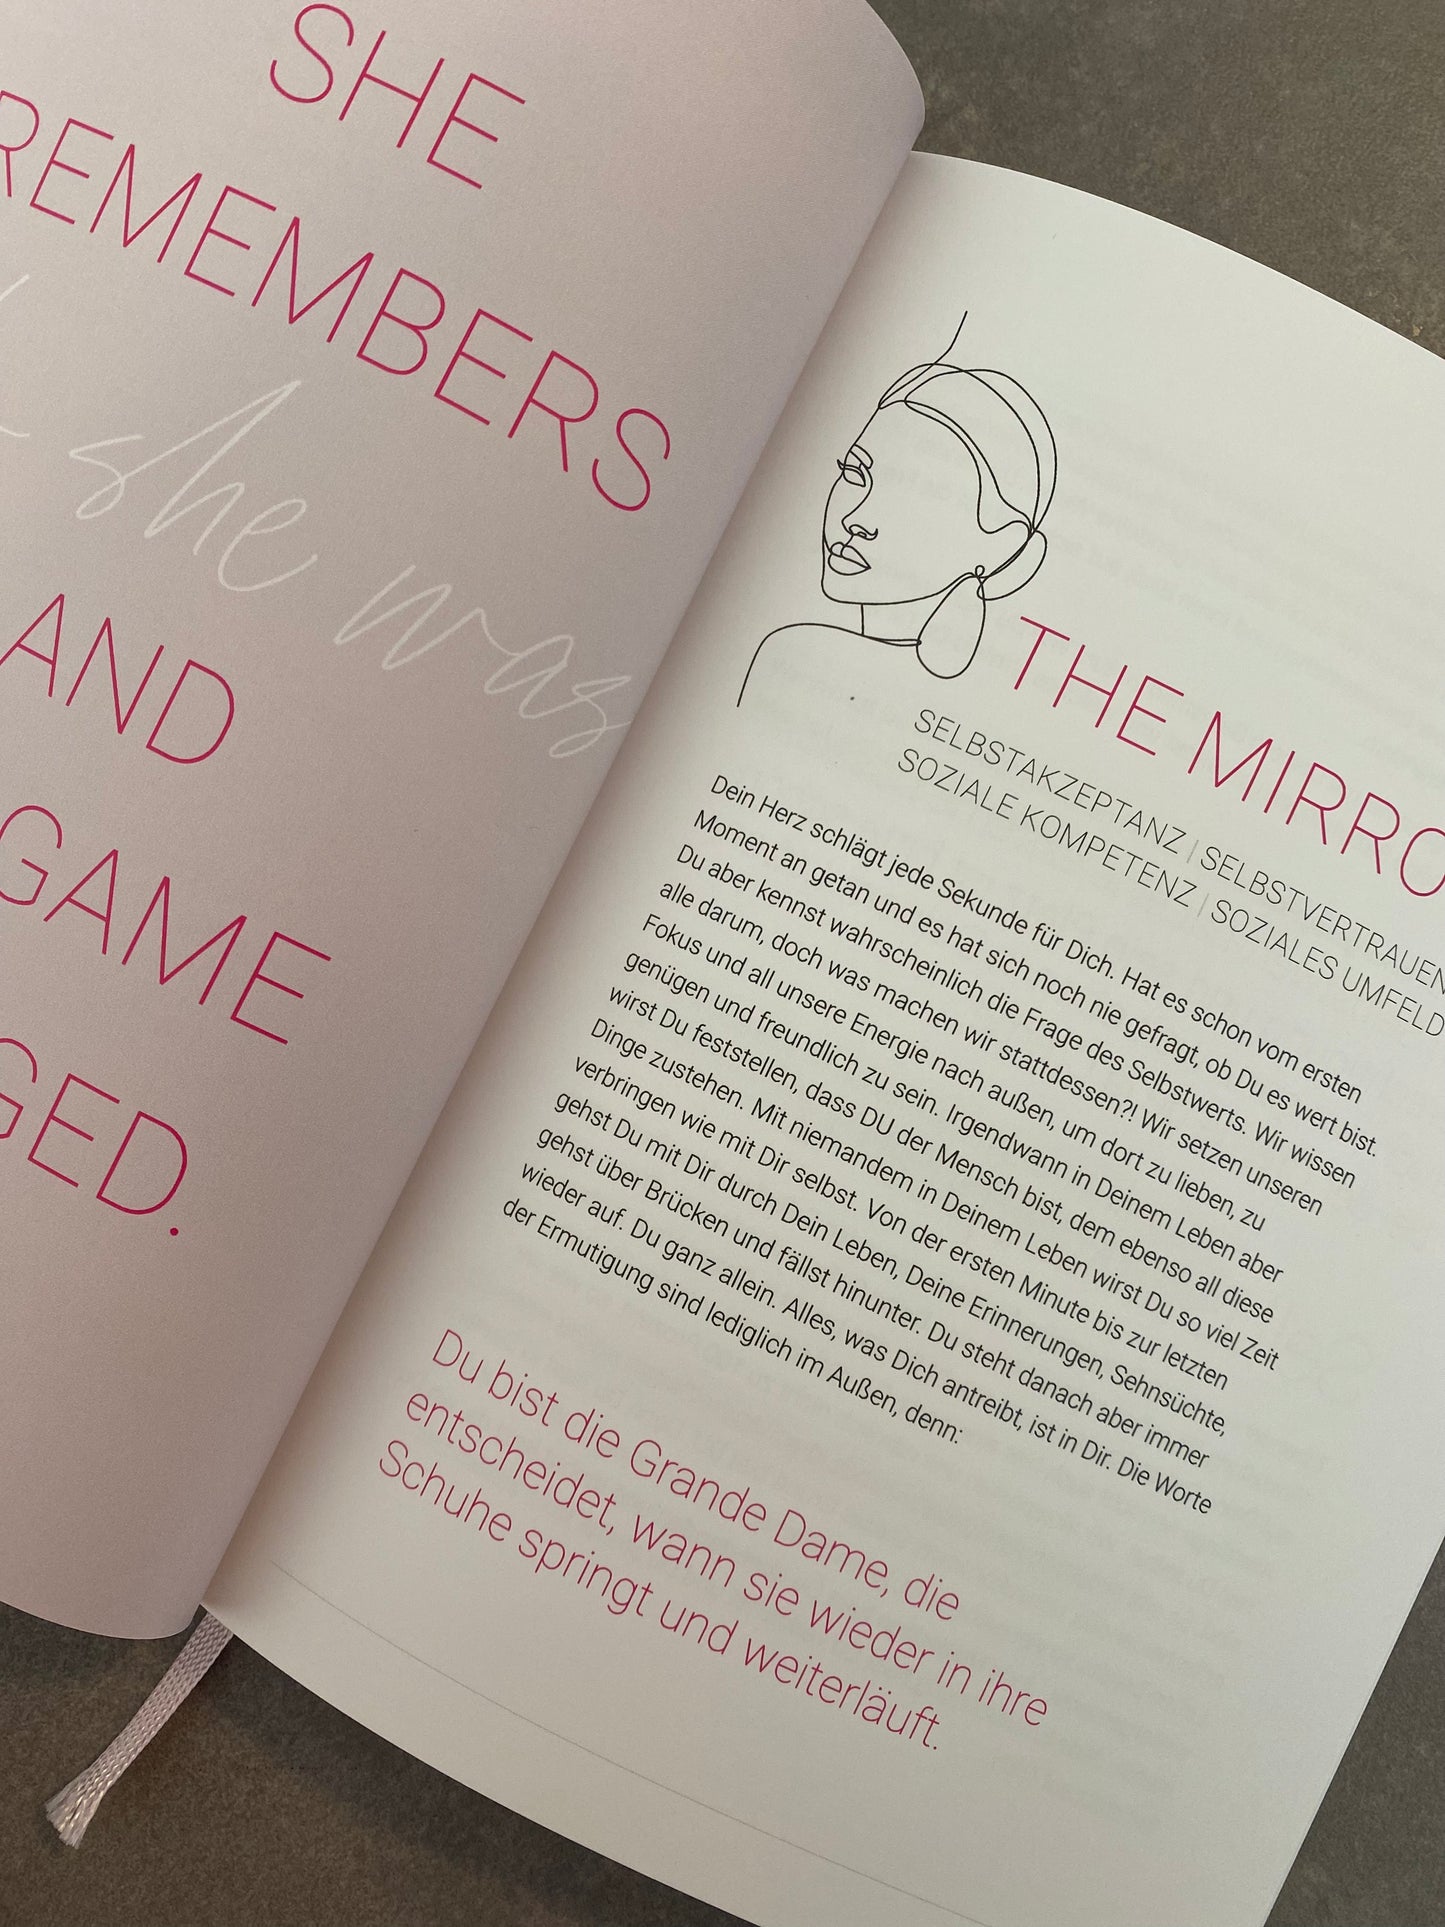 SHE
REMEMBERS
she was
AND
GAME
GED.
THE MIRRO
SELBSTAKZEPTANZ | SELBSTVERTRAUEN
SOZIALE KOMPETENZ | SOZIALES UMFELD
Dein Herz schlägt jede Sekunde für Dich. Hat es schon vom ersten
Moment an getan und es hat sich noch nie gefragt, ob Du es wert bist.
Du aber kennst wahrscheinlich die Frage des Selbstwerts. Wir wissen
alle darum, doch was machen wir stattdessen?! Wir setzen unseren
Fokus und all unsere Energie nach außen, um dort zu lieben, zu
genügen und freundlich zu sein. Irgendwann in Deinem Leben aber
wirst Du feststellen, dass DU der Mensch bist, dem ebenso all diese
Dinge zustehen. Mit niemandem in Deinem Leben wirst Du so viel Zeit
verbringen wie mit Dir selbst. Von der ersten Minute bis zur letzten
gehst Du mit Dir durch Dein Leben, Deine Erinnerungen, Sehnsüchte,
gehst über Brücken und fällst hinunter. Du stehst danach aber immer
wieder auf. Du ganz allein. Alles, was Dich antreibt, ist in Dir. Die Worte
der Ermutigung sind lediglich im Außen, denn:
Du bist die Grande Dame, die
entscheidet, wann sie wieder in ihre
Schuhe springt und weiterläuft.